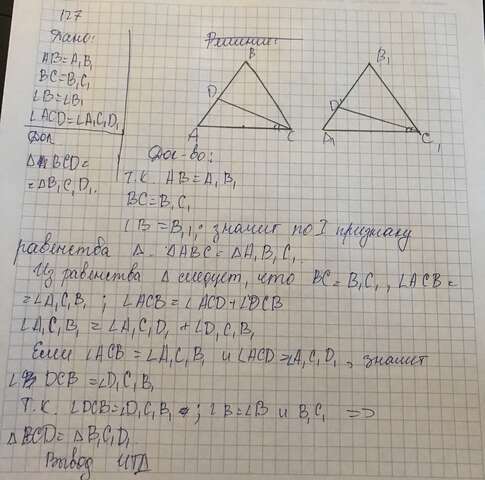 127
Дано:
AB=A₁B₁
BC=B₁C₁
∠B=∠B₁
∠ACD=∠A₁C₁D₁
Док
Δ BCD=
=ΔB₁C₁D₁.
Решение:
B
D
A
C
B₁
D
A₁
C₁
Док-во:
Т.К. AB=A₁B₁
BC=B₁C₁
∠B=B₁; значит по I признаку
равенства Δ. ΔABC=ΔA₁B₁C₁
Из равенства Δ следует, что BC=B₁C₁, ∠ACB=
=∠A₁C₁B₁; ∠ACB=∠ACD+∠DCB
∠A₁C₁B₁=∠A₁C₁D₁+∠D₁C₁B₁
Если ∠ACB=∠A₁C₁B₁ и ∠ACD=∠A₁C₁D₁, значит
∠ DCB=∠D₁C₁B₁
Т.К. ∠DCB=∠D₁C₁B₁; ∠B=∠B и B₁C₁ =>
ΔBCD=ΔB₁C₁D₁
Вывод ЧТД